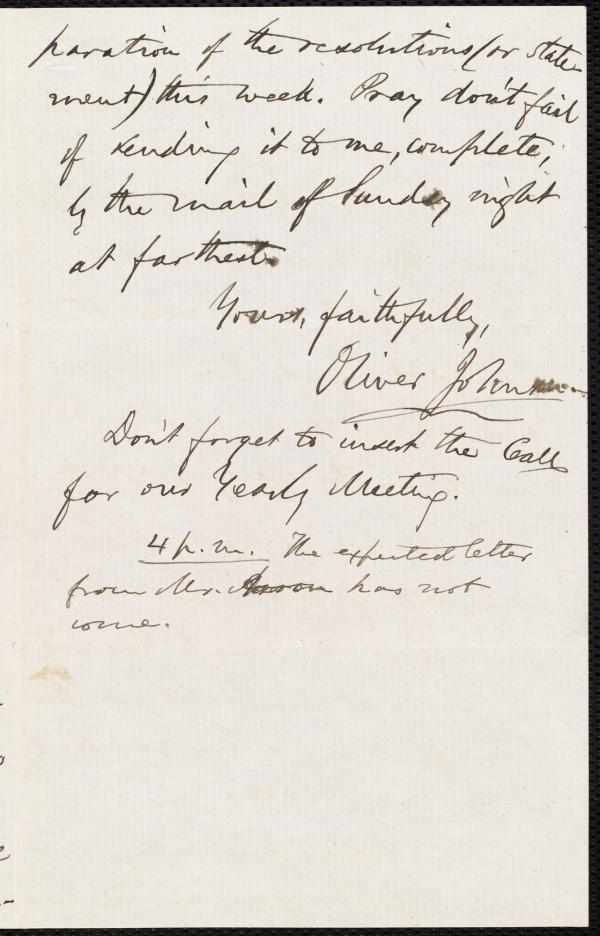 paration of the resolutions (or state-
ment) this week. Pray don't fail
of sending it to me, complete,
by the mail of Sunday night
at farthest.
Yours, faithfully,
Oliver Johnson.
Don't forget to insert the Call
for our Yearly Meeting.
4 p.m. The expected letter
from Mr. has not
come.